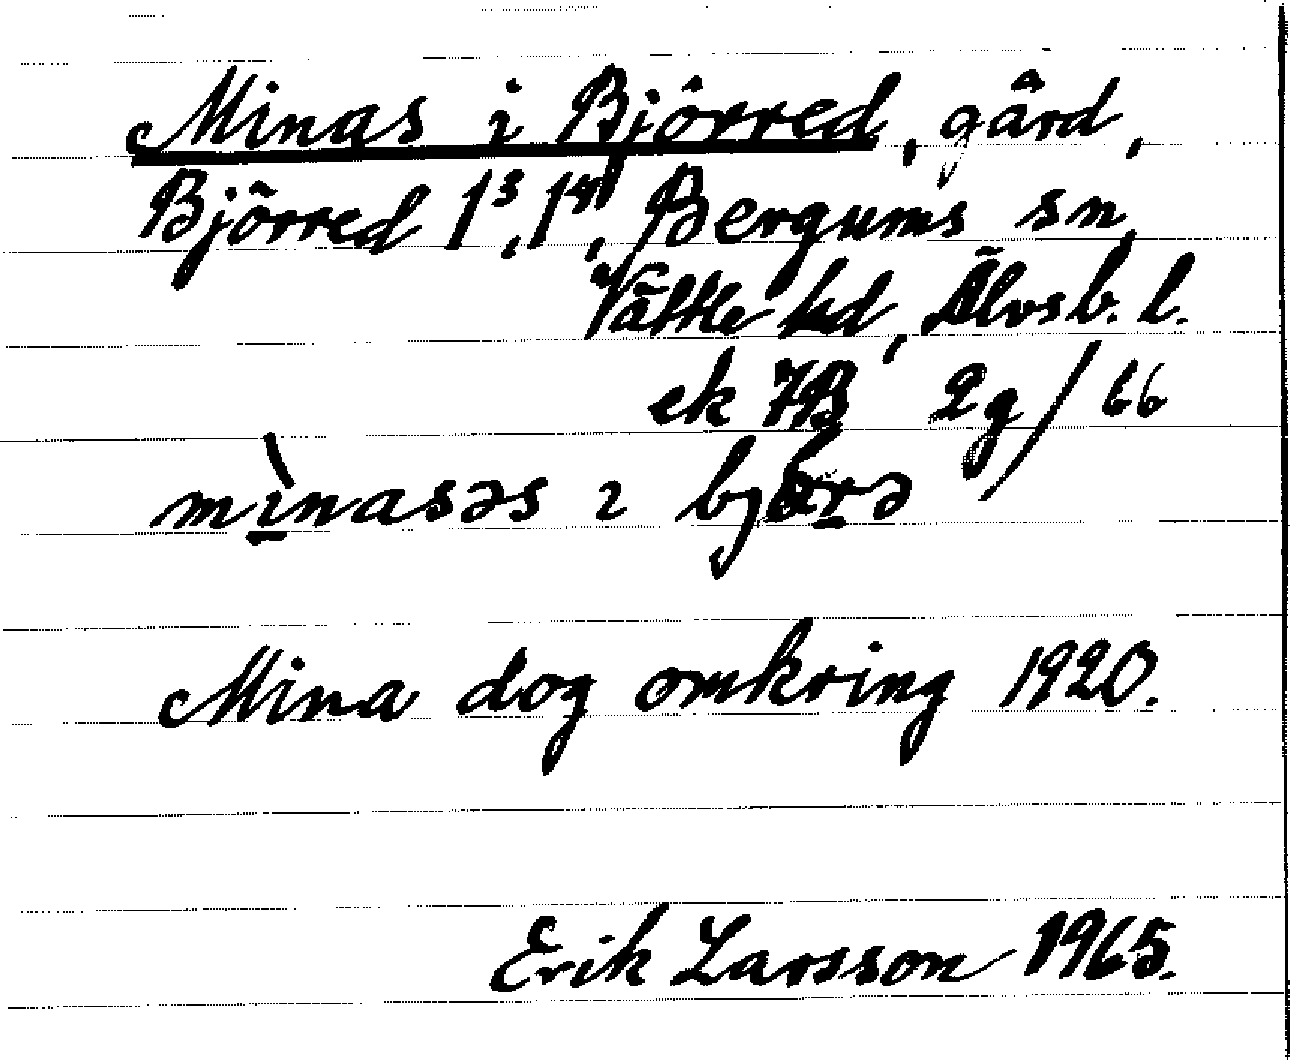 Minas i Björred, gård,
Björred 1³, 1⁴, Bergums sn,
Vättle hd, Älvsb. l.
ek 7B 2g/66
mìnasəs ɩ björə
Mina dog omkring 1920.
Erik Larsson 1965.